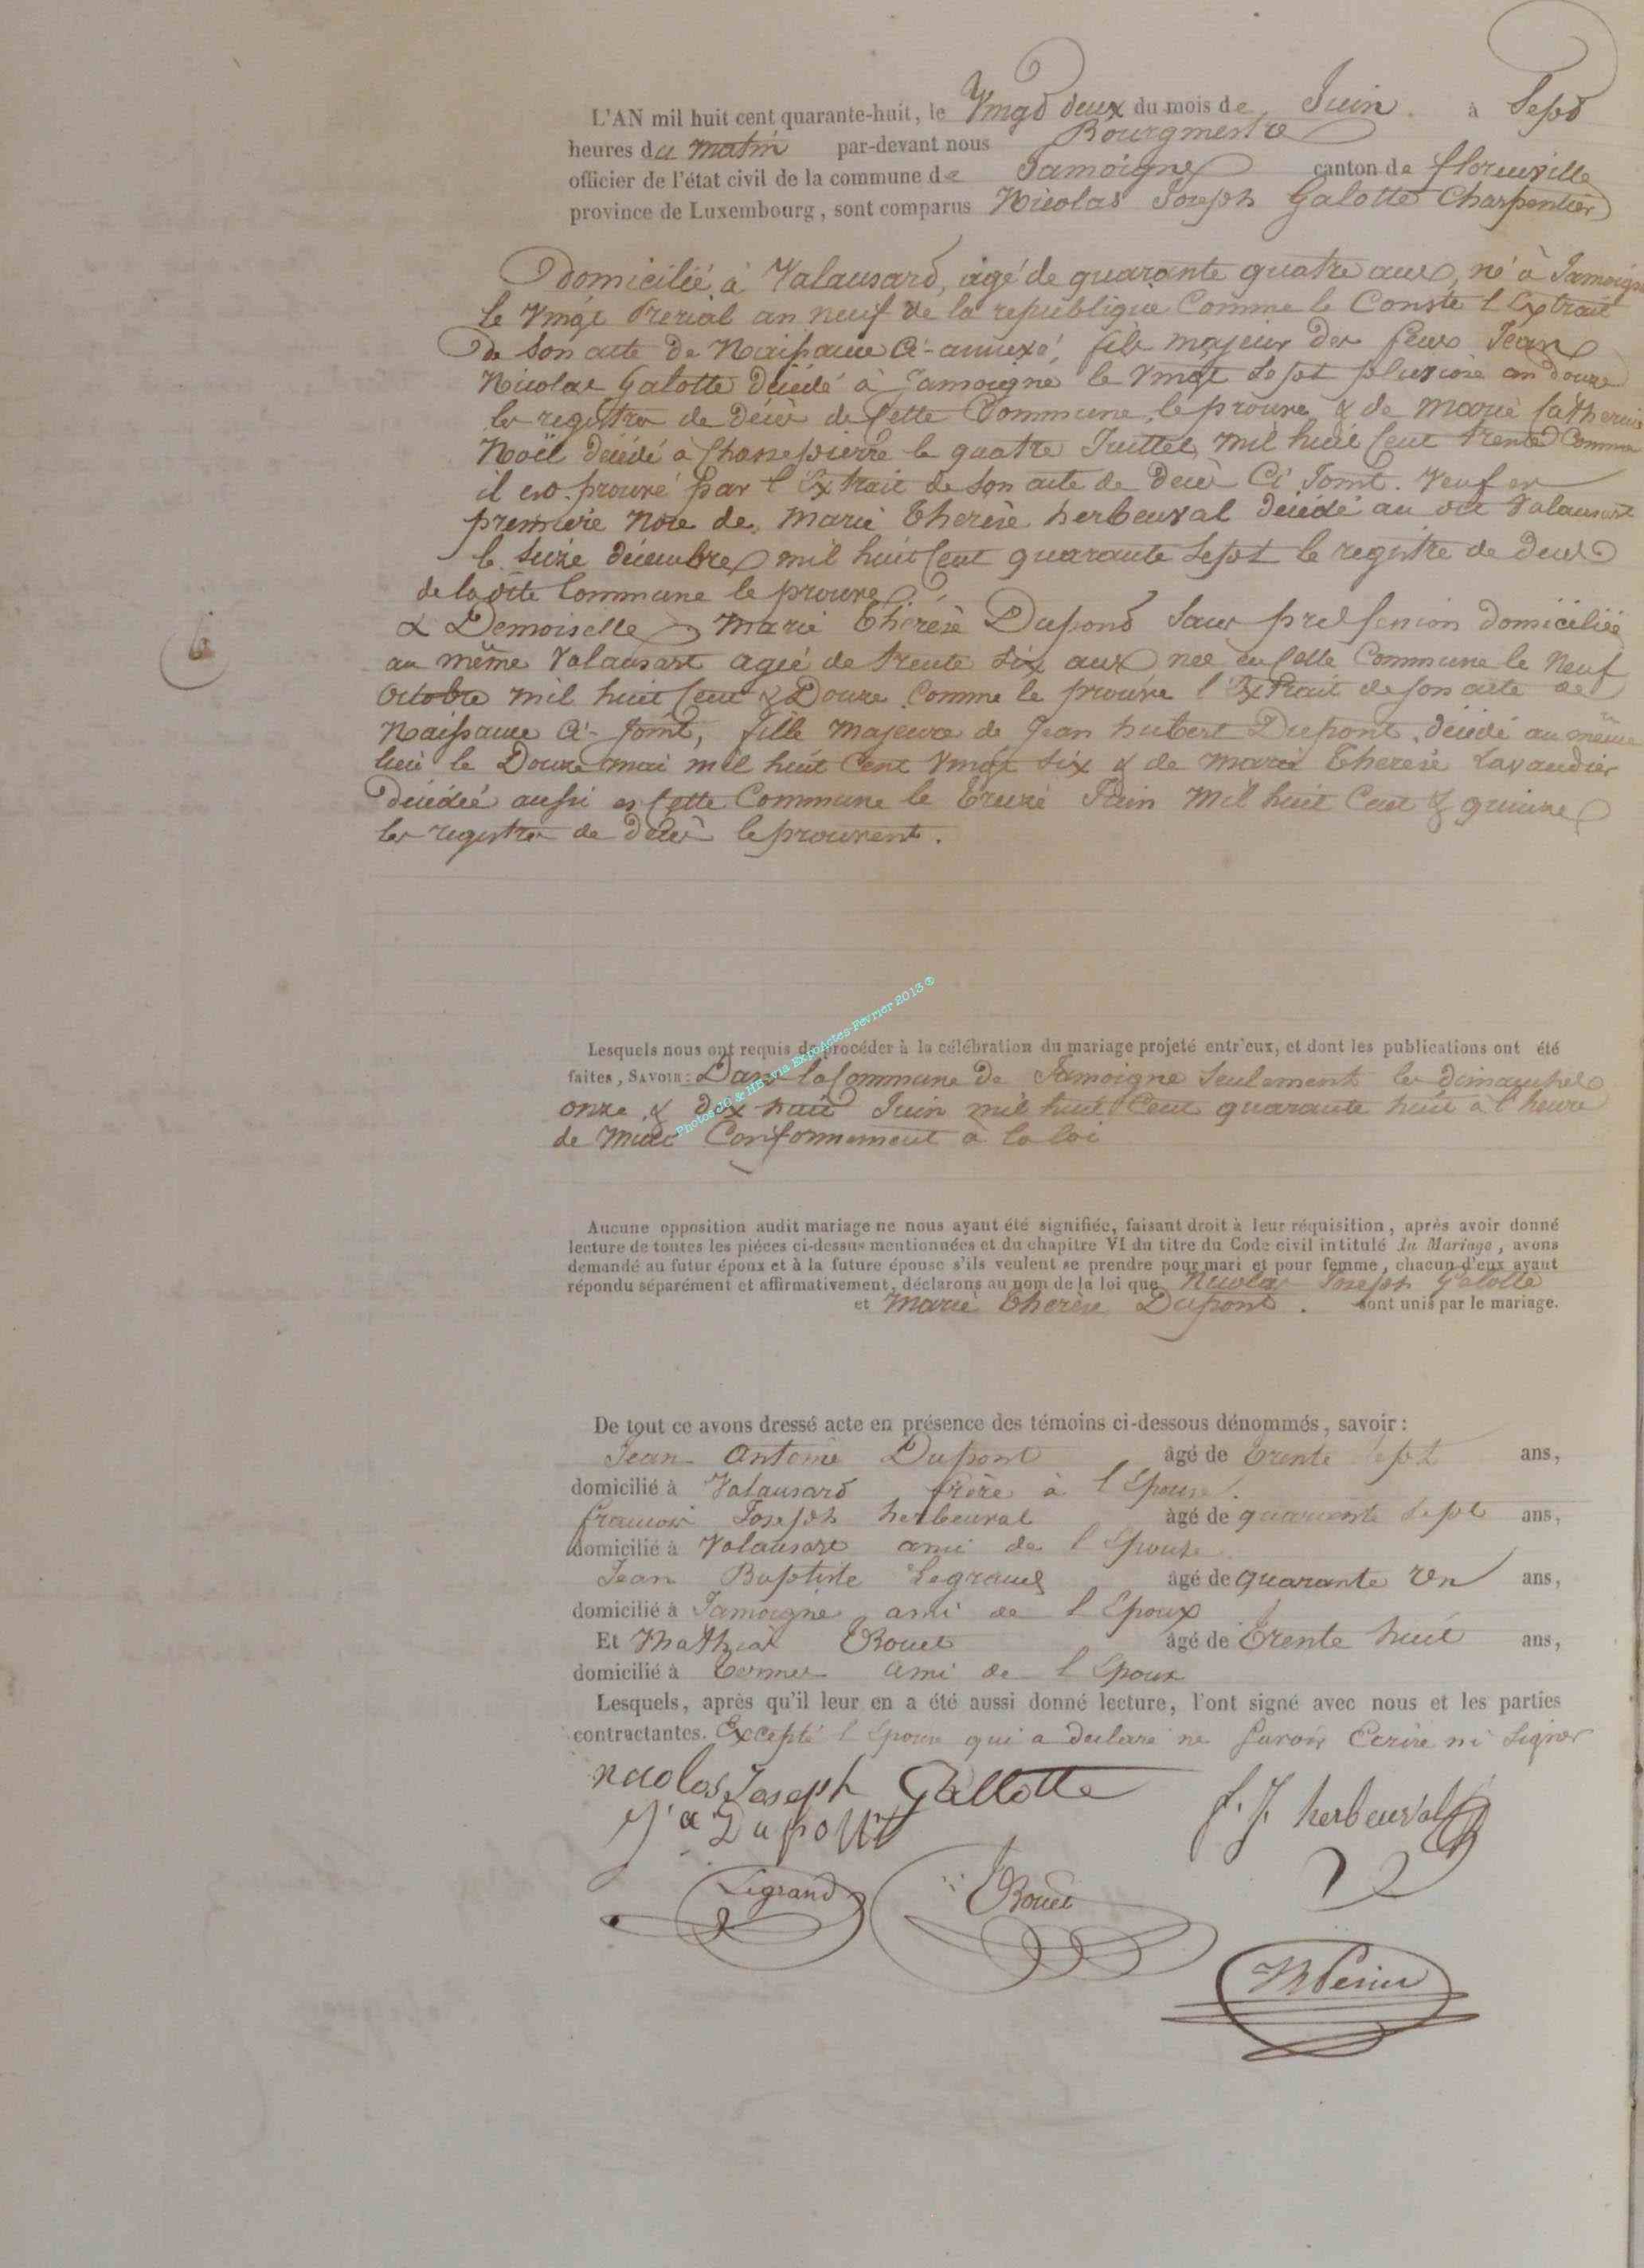 L'AN mil huit cent quarante-huit, le Vingt deux du mois de Juin. à Sept
heures du matin par-devant nous Bourgmestre
officier de l'état civil de la commune de Jamoigne canton de florenville
province de Luxembourg, sont comparus Nicolas Joseph Galotte Charpentier
Domicilié à Valansard, agé de quarante quatre ans, né à Jamoigne
le Vingt Prerial an neuf de la republique Comme le Conste l Extrait
de Son acte de Naissance Ci-annexé, fils majeur des feus Jean
Nicolas Galotte décédé à Jamoigne le Vingt Sept pluviose an douze
les registres de décès de Cette Commune le prouve, & de Marie Catherine
Noël décédé à Chassepierre le quatre Juillet mil huit Cent trente Comme
il est prouvé par l'Extrait de Son acte de Décès Ci Joint. Veuf en
premiere Noce de Marie Therèse herbeuval décédé au dit Valansart
le Seize décembre mil huit Cent quarante Sept le registre de deces
de la dite Commune le prouve
& Demoiselle Marie Thérèse Dupond Sans profession domiciliée
au même Valansart agée de trente Six ans née en Cette Commune le Neuf
Octobre mil huit Cent & Douze Comme le prouve l'Extrait de son acte de
Naissance Ci-joint, fille Majeure de Jean hubert Dupont, décédé au même
lieu le Douze mai mil huit Cent Vingt Six & de Marie Therèse Lavaudier
Décédée aussi en Cette Commune le Treize Juin Mil huit Cent & quinze
les registres de Décès le prouvent.
Lesquels nous ont requis de procéder à la célébration du mariage projeté entr'eux, et dont les publications ont été
faites, SAVOIR: Dans la Commune de Jamoigne Seulement les dimanches
onze & dix huit Juin mil huit Cent quarante huit à l'heure
de Midi Conformement à la loi
Photos JG & HB via ExpoActes-Février 2013 ©
Aucune opposition audit mariage ne nous ayant été signifiée, faisant droit à leur réquisition, après avoir donné
lecture de toutes les pièces ci-dessus mentionnées et du chapitre VI du titre du Code civil intitulé du Mariage, avons
demandé au futur époux et à la future épouse s'ils veulent se prendre pour mari et pour femme, chacun d'eux ayant
répondu séparément et affirmativement, déclarons au nom de la loi que Nicolas Joseph Galotte
et Marie Therèse Dupont. sont unis par le mariage.
De tout ce avons dressé acte en présence des témoins ci-dessous dénommés, savoir:
Jean Antoine Dupont âgé de Trente Sept ans,
domicilié à Valansard frère à l'Epouse.
francois Joseph herbeuval âgé de quarante Sept ans,
domicilié à Valansart ami de l Epouse
Jean Baptiste Legrand âgé de quarante Un ans,
domicilié à Jamoigne ami de l Epoux
Et Mathias Bouet âgé de Trente huit ans,
domicilié à Termes ami de l Epoux
Lesquels, après qu'il leur en a été aussi donné lecture, l'ont signé avec nous et les parties
contractantes. Excepté l Epouse qui a declaré ne Savoir Ecrire ni Signer
nicolas Joseph Gallotte
J a Dupont
f. J. herbeuval
Legrand
Bouet